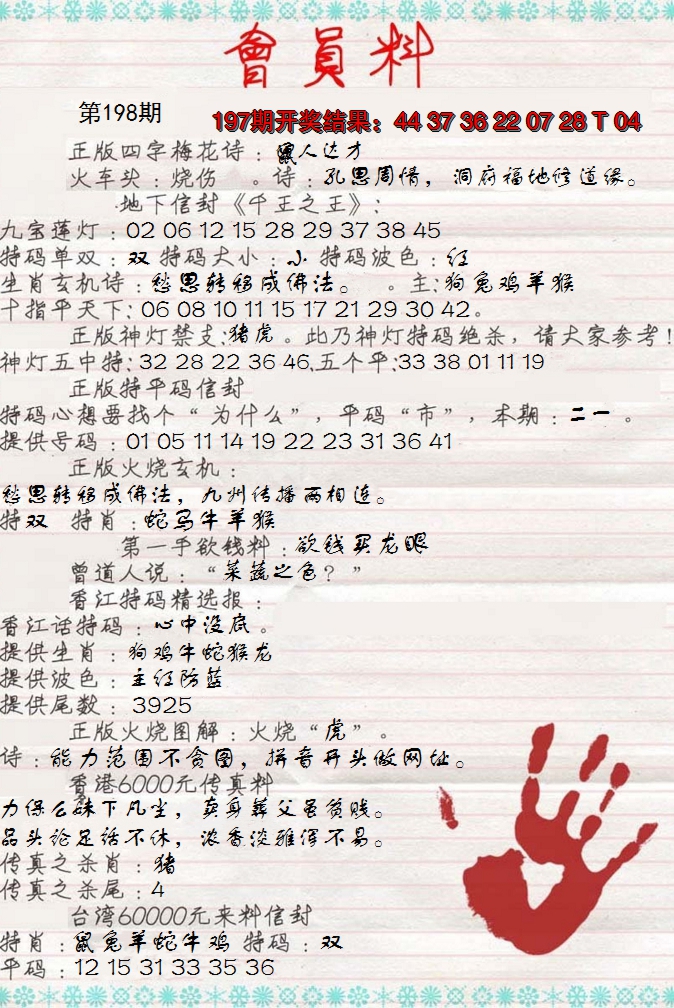 會員料
第198期
197期开奖结果：44 37 36 22 07 28 T 04
正版四字梅花诗：鼠人达才
火车头：烧伤 。诗：孔思周情，洞府福地修道缘。
地下信封《千王之王》：
九宝莲灯：02 06 12 15 28 29 37 38 45
特码单双：双 特码大小：小 特码波色：红
生肖玄机诗：愁思转移成佛法。 。主：狗兔鸡羊猴
十指平天下：06 08 10 11 15 17 21 29 30 42。
正版神灯禁支：猪虎 。此乃神灯特码绝杀，请大家参考！
神灯五中特：32 28 22 36 46.五个平：33 38 01 11 19
正版特平码信封
特码心想要找个“为什么”，平码“市”，本期：二一 。
提供号码：01 05 11 14 19 22 23 31 36 41
正版火烧玄机：
愁思转移成佛法，九州传播两相连。
特双 特肖：蛇马牛羊猴
第一手欲钱料：欲钱买龙眼
曾道人说：“菜蔬之色？”
香江特码精选报：
香江话特码：心中没底。
提供生肖：狗鸡牛蛇猴龙
提供波色：主红防蓝
提供尾数：3925
正版火烧图解：火烧“虎”。
诗：能力范围不贪图，拼音开头做网址。
香港6000元传真料
力保么妹下凡尘，卖身葬父虽贫贱。
品头论足话不休，浓香淡雅俗不易。
传真之杀肖：猪
传真之杀尾：4
台湾60000元来料信封
特肖：鼠兔羊蛇牛鸡 特码：双
平码：12 15 31 33 35 36